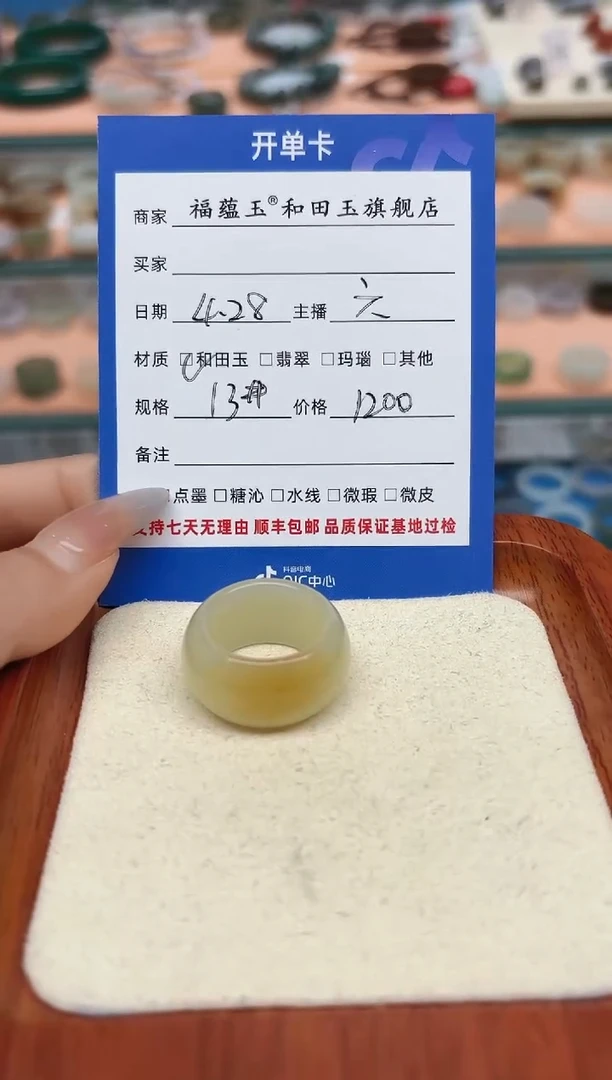 开单卡
商家 福蕴玉®和田玉旗舰店
买家
日期 4.28 主播 六
材质 ☑和田玉 □翡翠 □玛瑙 □其他
规格 13# 价格 1200
备注
点墨 □糖沁 □水线 □微瑕 □微皮
支持七天无理由 顺丰包邮 品质保证基地过检
抖音电商
QIC中心